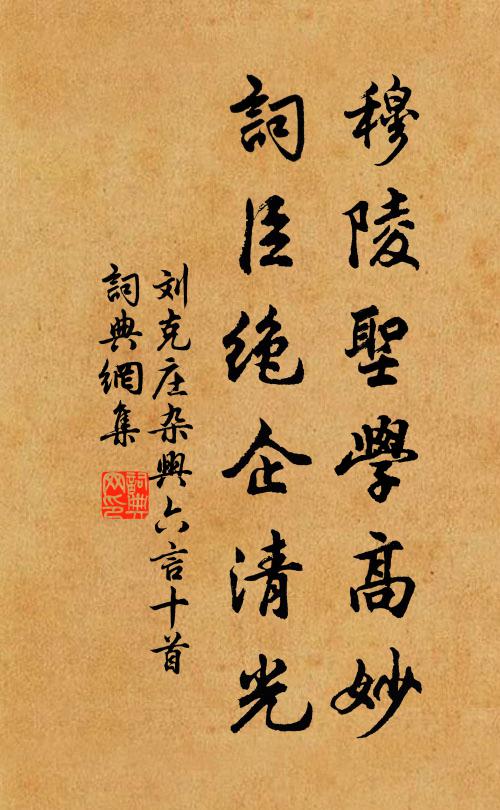 穆陵聖學高妙
詞臣绝企清光
刘克庄杂興六言十首
詞典網集
詞典網印